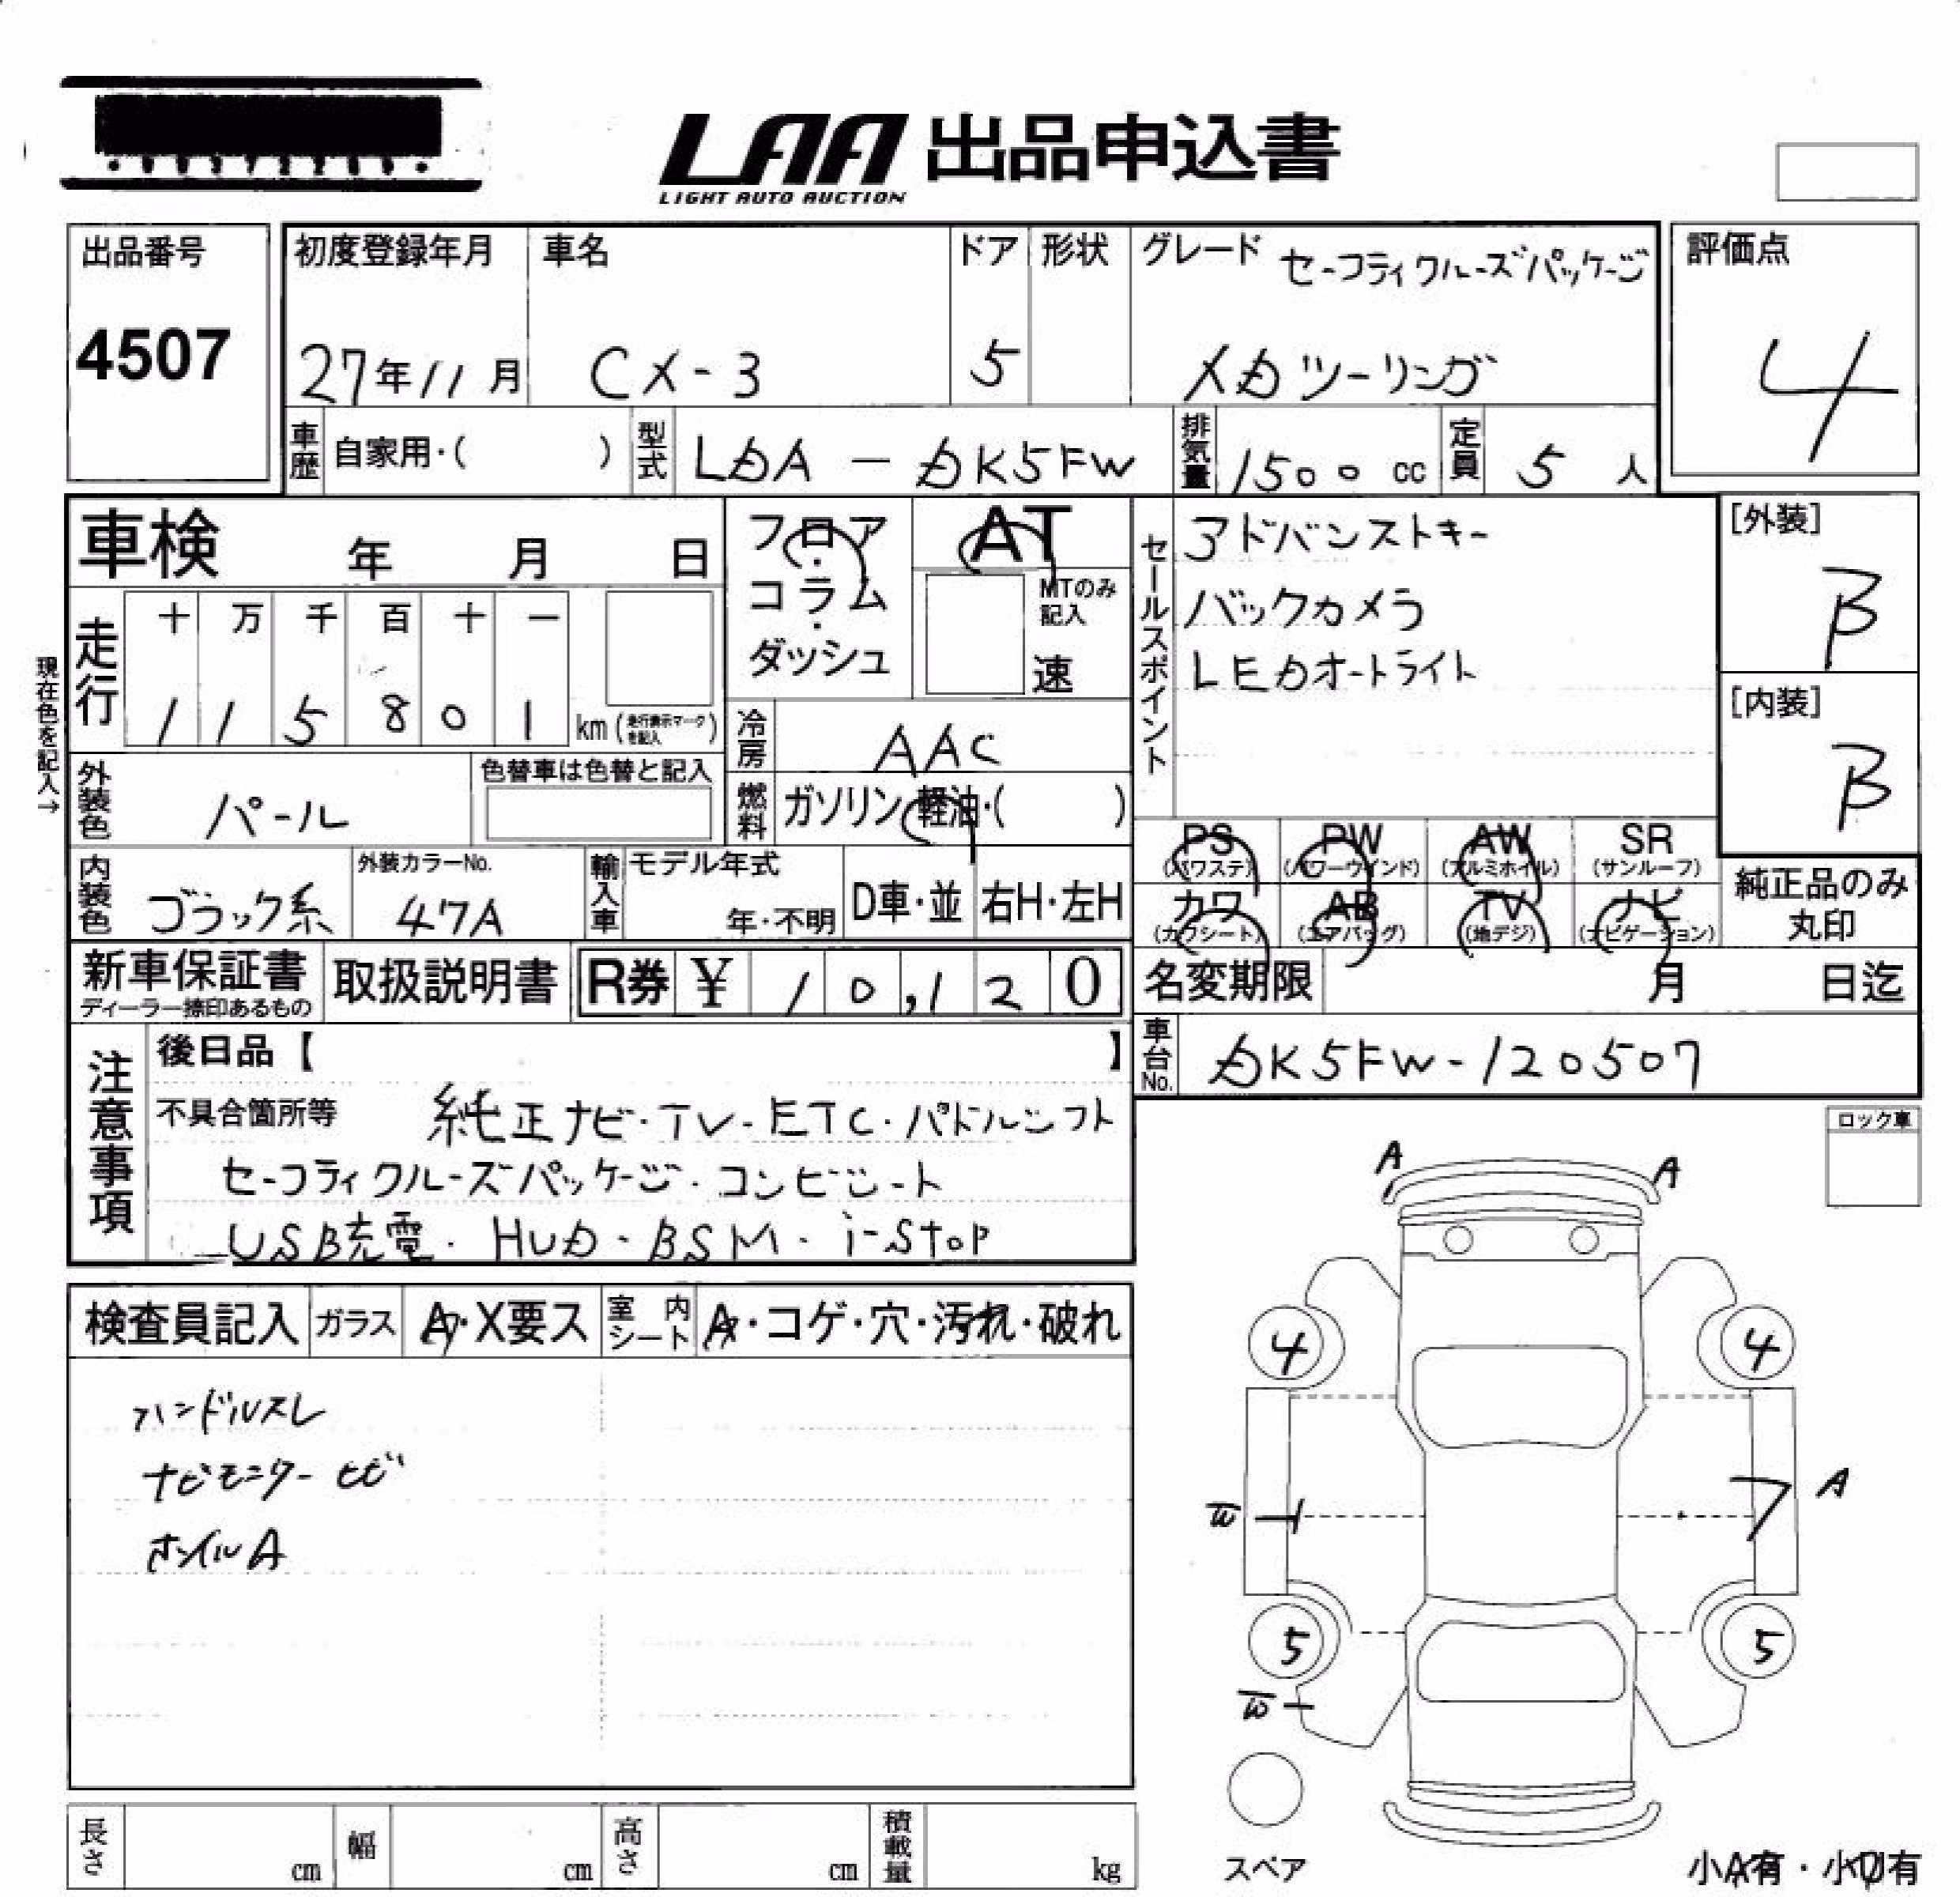 LAA 出品申込書
LIGHT AUTO AUCTION
出品番号
4507
初度登録年月
27年11月
車名
CX-3
ドア
5
形状
グレード セーフティクルーズパッケージ
XDツーリング
評価点
4
車歴 自家用・( )
型式 LDA - DK5FW
排気量 1500 cc
定員 5 人
車検 年 月 日
フロア・コラム・ダッシュ
AT
MTのみ記入
速
セールスポイント
アドバンストキー
バックカメラ
LEDオートライト
[外装]
B
[内装]
B
現在色を記入→
走行
十 万 千 百 十 一
1 1 5 8 0 1 km (走行表示マークを記入)
冷房 AAC
外装色 パール
色替車は色替と記入
燃料 ガソリン・軽油・( )
PS (パワステ)
PW (パワーウインド)
AW (アルミホイル)
SR (サンルーフ)
カワ (カワシート)
AB (エアバッグ)
TV (地デジ)
ナビ (ナビゲーション)
純正品のみ丸印
内装色 ブラック系
外装カラーNo. 47A
輸入車
モデル年式
年・不明
D車・並
右H・左H
新車保証書
ディーラー捺印あるもの
取扱説明書
R券 ¥ 10,120
名変期限 月 日迄
車台No. DK5FW-120507
注意事項
後日品【 】
不具合箇所等 純正ナビ・TV・ETC・パドルシフト
セーフティクルーズパッケージ・コンビシート
USB充電・HUD・BSM・i-stop
ロック車
検査員記入 ガラス A・X要ス 室内シート A・コゲ・穴・汚れ・破れ
ハンドルスレ
ナビモニターヒビ
ホイルA
A A
4 4
W A
5 5
W
スペア
小A有・小U有
長さ cm 幅 cm 高さ cm 積載量 kg